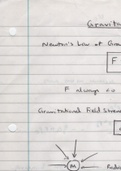 Gravita
Newton's Law of Grav
F
F always -ve
Gravitational Field Stren
M
Radia